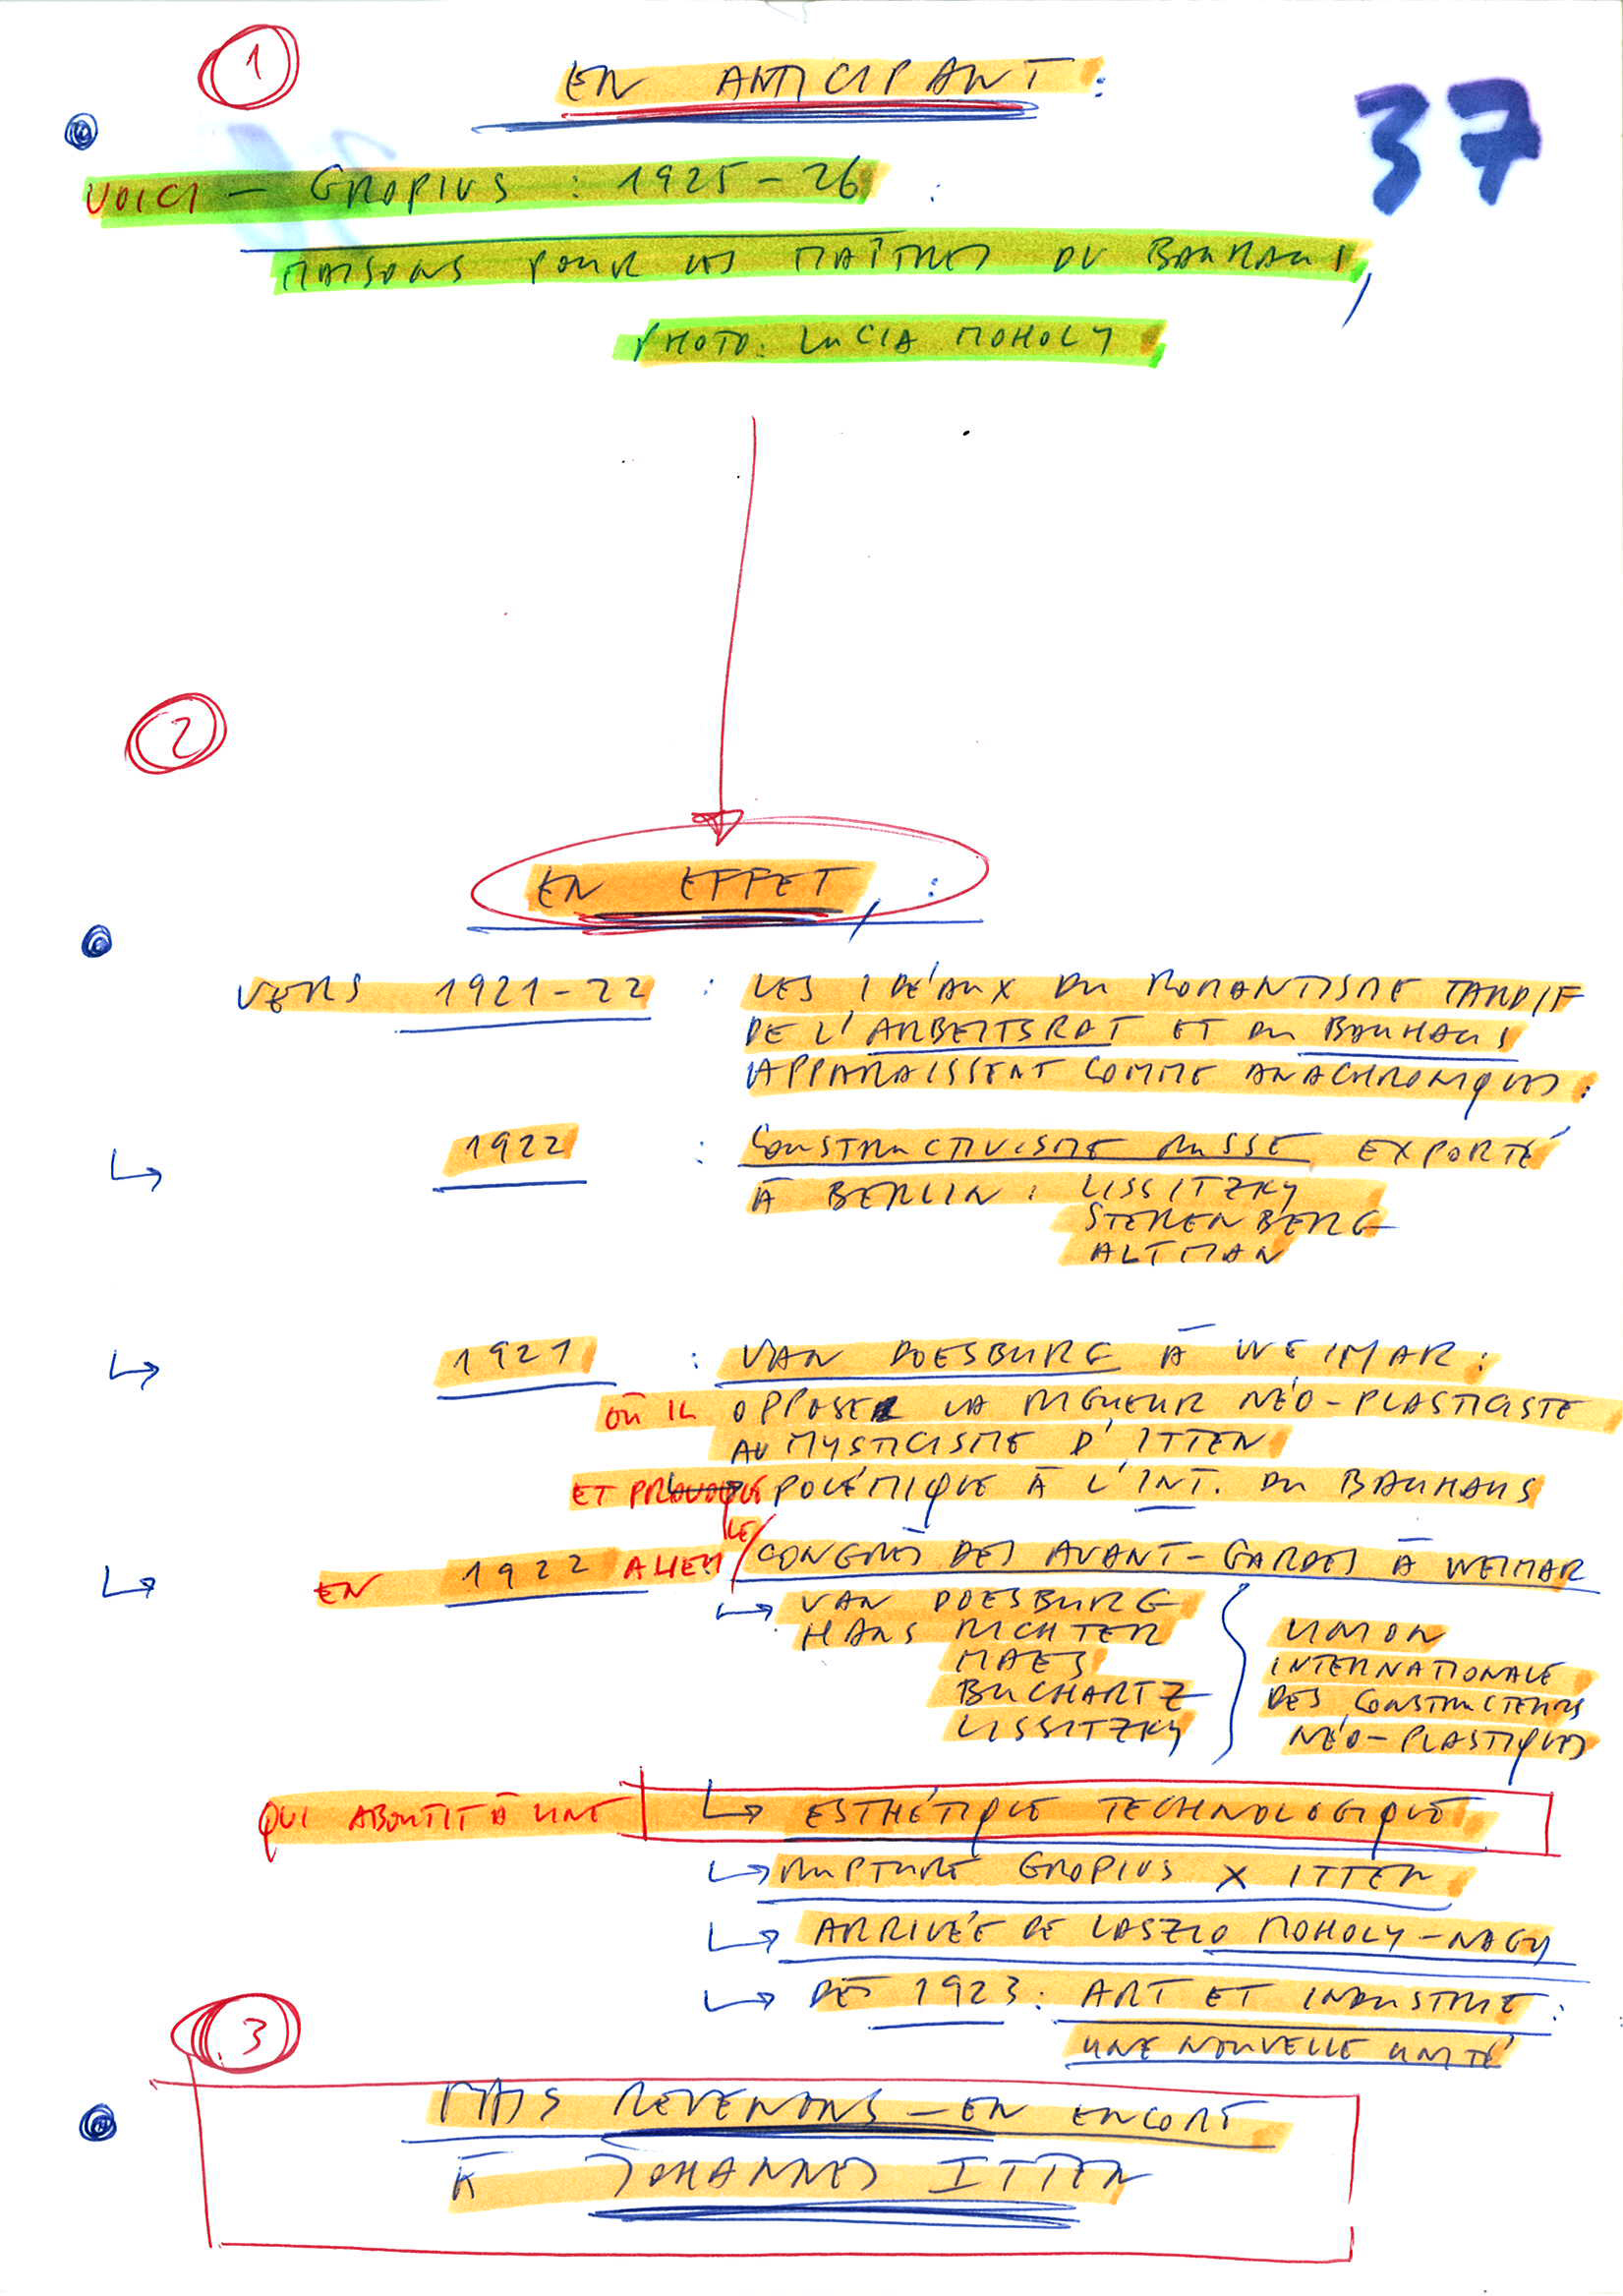 1
EN ANTICIPANT :
37
VOICI — GROPIUS : 1925-26 :
MAISONS POUR LES MAÎTRES DU BAUHAUS,
PHOTO: LUCIA MOHOLY
2
EN EFFET, :
VERS 1921-22 : LES IDÉAUX DU ROMANTISME TARDIF
DE L'ARBEITSRAT ET DU BAUHAUS
APPARAISSENT COMME ANACHRONIQUES :
↳ 1922 : CONSTRUCTIVISME RUSSE EXPORTÉ
À BERLIN : LISSITZKY
STERENBERG
ALTMAN
↳ 1921 : VAN DOESBURG À WEIMAR :
OÙ IL OPPOSE LA RIGUEUR NÉO-PLASTICISTE
AU MYSTICISME D'ITTEN
ET PROVOQUE POLÉMIQUE À L'INT. DU BAUHAUS
↳ EN 1922 A LIEU LE / CONGRÈS DES AVANT-GARDES À WEIMAR
↳ VAN DOESBURG
HANS RICHTER
MAES
BUCHARTZ
LISSITZKY
UNION
INTERNATIONALE
DES CONSTRUCTEURS
NÉO-PLASTIQUES
QUI ABOUTIT À UNE ↳ ESTHÉTIQUE TECHNOLOGIQUE
↳ RUPTURE GROPIUS X ITTEN
↳ ARRIVÉE DE LASZLO MOHOLY-NAGY
↳ DÈS 1923 : ART ET INDUSTRIE :
UNE NOUVELLE UNITÉ
3
MAIS REVENONS-EN ENCORE
À JOHANNES ITTEN